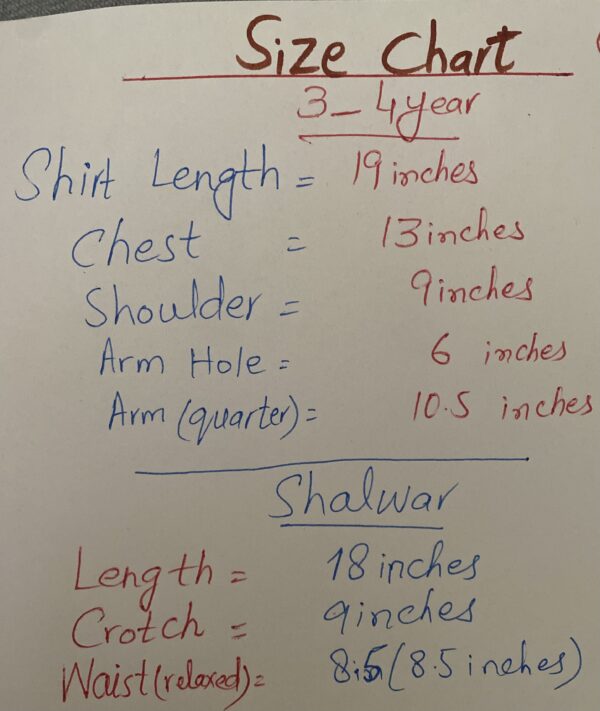 Size Chart
3-4year
Shirt Length = 19 inches
Chest = 13 inches
Shoulder = 9 inches
Arm Hole = 6 inches
Arm (quarter) = 10.5 inches
Shalwar
Length = 18 inches
Crotch = 9 inches
Waist (relaxed) = 8.5 (8.5 inches)